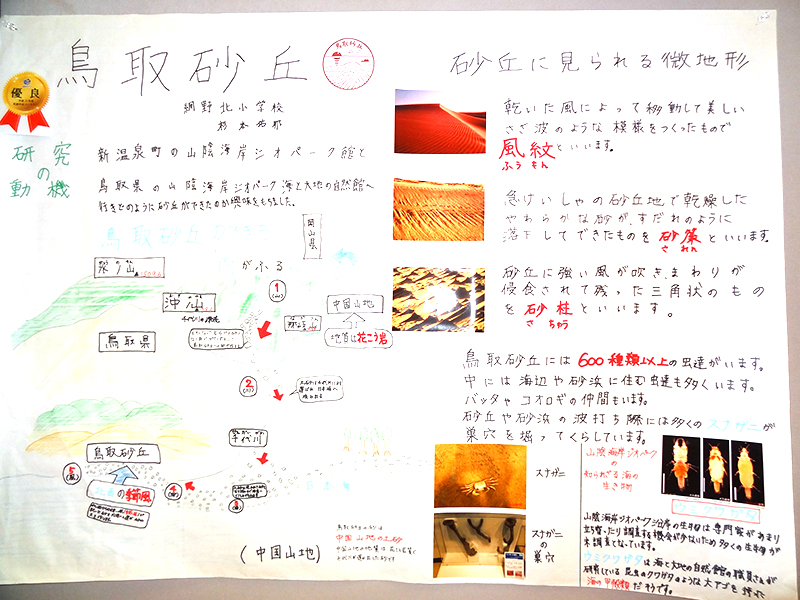 鳥取砂丘
鳥取砂丘
優良
網野北小学校
研究
の
動機
新温泉町の山陰海岸ジオパーク館と
鳥取県の山陰海岸ジオパーク海と大地の自然館へ
行きどのように砂丘ができたのか興味をもちました。
鳥取砂丘
岡山県
がふる
氷ノ山
沖ノ山
千代川の源流
鳥取県
①
(山)
中国山地
地質は花こう岩
②
(川)
千代川
鳥取砂丘
の季節風
⑤
④
③
日本海
鳥取砂丘の砂は
中国山地の土砂
(中国山地)
砂丘に見られる微地形
乾いた風によって移動して美しい
さざ波のような模様をつくったもので
風紋といいます。
ふうもん
急けいしゃの砂丘地で乾燥した
やわらかな砂が、すだれのように
落下してできたものを砂簾といいます。
されん
砂丘に強い風が吹き、まわりが
侵食されて残った三角状のもの
を砂柱といいます。
さちゅう
鳥取砂丘には600種類以上の虫達がいます。
中には海辺や砂浜に住む虫達も多くいます。
バッタやコオロギの仲間もいます。
砂丘や砂浜の波打ち際には多くのスナガニが
巣穴を掘ってくらしています。
スナガニ
スナガニ
の
巣穴
山陰海岸ジオパークの
知られざる海の
生き物
ウミクワガタ
山陰海岸ジオパーク沿岸の生物は専門家があまり
立ち寄ったり調査する機会が少ないため多くの生物が
未調査となっています。
ウミクワガタは海と大地の自然館の職員さんが
研究している昆虫のクワガタのような大アゴを持った
海の甲殻類だそうです。